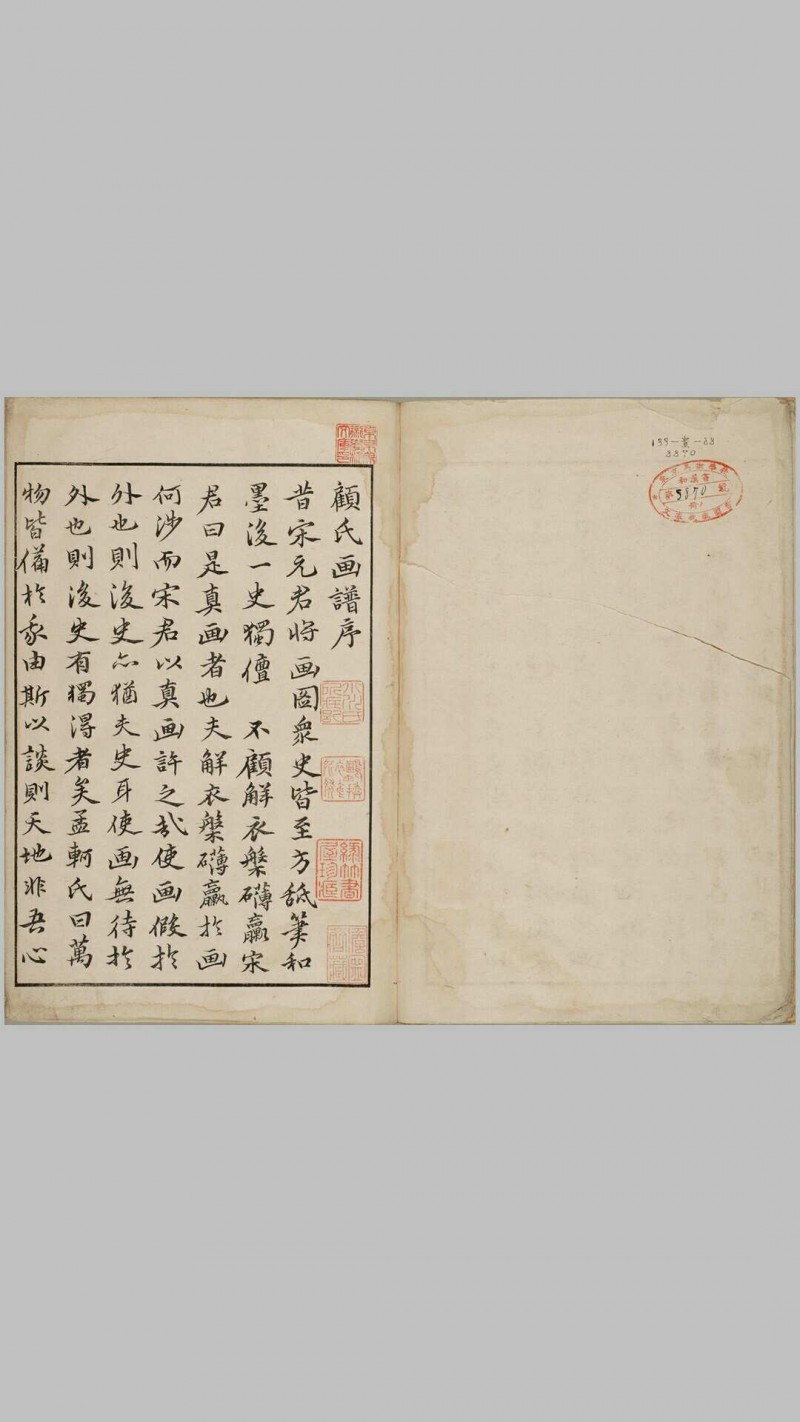 顧氏画譜序
昔宋元君将画圖衆史皆至方舐筆和
墨後一史獨儃　不顧解衣槃礴臝宋
君曰是真画者也夫解衣槃礴臝扵画
何涉而宋君以真画許之哉使画假扵
外也則後史亦猶夫史耳使画無待扵
外也則後史有獨淂者矣孟軻氏曰萬
物皆僃扵我由斯以談則天地非吾心
139-寞-88
3870
3870